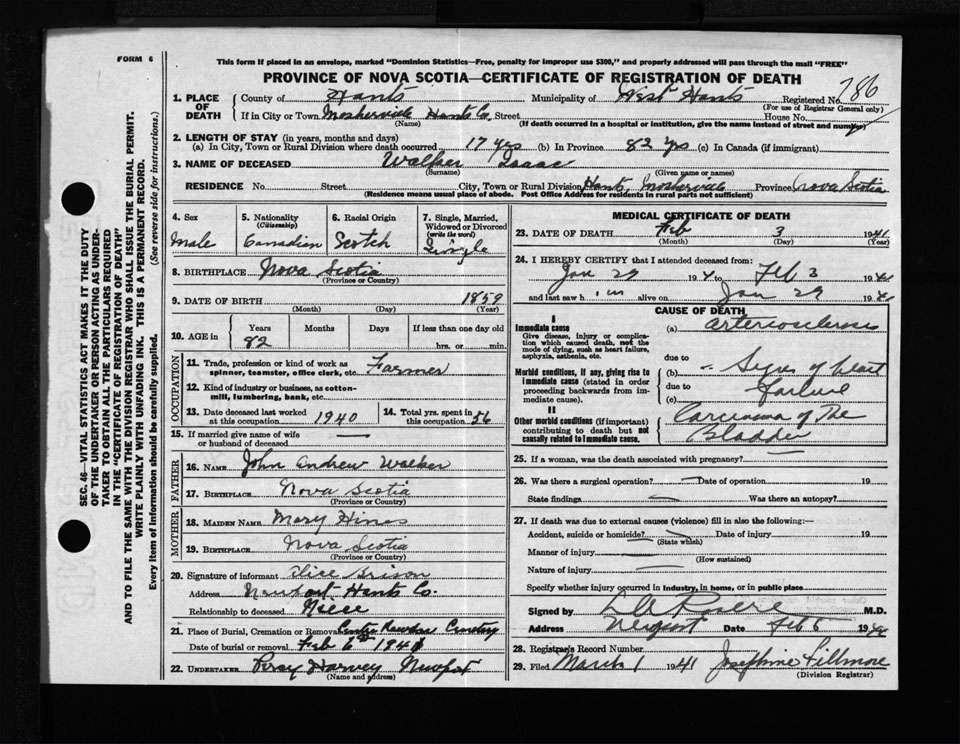 FORM 6
This form if placed in an envelope, marked "Dominion Statistics—Free, penalty for improper use $300," and properly addressed will pass through the mail "FREE"
PROVINCE OF NOVA SCOTIA—CERTIFICATE OF REGISTRATION OF DEATH
SEC. 46—VITAL STATISTICS ACT MAKES IT THE DUTY
OF THE UNDERTAKER OR PERSON ACTING AS UNDER-
TAKER TO OBTAIN ALL THE PARTICULARS REQUIRED
IN THE "CERTIFICATE OF REGISTRATION OF DEATH"
AND TO FILE THE SAME WITH THE DIVISION REGISTRAR WHO SHALL ISSUE THE BURIAL PERMIT.
WRITE PLAINLY WITH UNFADING INK. THIS IS A PERMANENT RECORD.
Every item of information should be carefully supplied. (See reverse side for instructions.)
1. PLACE OF DEATH
County of Hants Municipality of West Hants Registered No. 786
(For use of Registrar General only)
If in City or Town Mosherville Hants Co. Street House No.
(Name) (If death occurred in a hospital or institution, give the name instead of street and number)
2. LENGTH OF STAY (in years, months and days)
(a) In City, Town or Rural Division where death occurred 17 yrs (b) In Province 82 yrs (c) In Canada (if immigrant)
3. NAME OF DECEASED Walker Isaac
(Surname) (Given name or names)
RESIDENCE No. Street City, Town or Rural Division Hants, Mosherville Province Nova Scotia
(Residence means usual place of abode. Post Office Address for residents in rural parts not sufficient)
4. Sex Male
5. Nationality (Citizenship) Canadian
6. Racial Origin Scotch
7. Single, Married, Widowed or Divorced (write the word) Single
8. BIRTHPLACE Nova Scotia
(Province or Country)
9. DATE OF BIRTH 1859
(Month) (Day) (Year)
10. AGE in Years Months Days If less than one day old
82 hrs. or min.
OCCUPATION
11. Trade, profession or kind of work as spinner, teamster, office clerk, etc. Farmer
12. Kind of industry or business, as cotton-mill, lumbering, bank, etc.
13. Date deceased last worked at this occupation 1940
14. Total yrs. spent in this occupation 56
15. If married give name of wife or husband of deceased —
FATHER
16. NAME John Andrew Walker
17. BIRTHPLACE Nova Scotia
(Province or Country)
MOTHER
18. MAIDEN NAME Mary
19. BIRTHPLACE Nova Scotia
(Province or Country)
20. Signature of informant Alice
Address Newport Hants Co.
Relationship to deceased Niece
21. Place of Burial, Cremation or Removal Centre Rawdon Cemetery
Date of burial or removal Feb 6th 1941
22. UNDERTAKER Percy Harvey Newport
(Name and address)
MEDICAL CERTIFICATE OF DEATH
23. DATE OF DEATH Feb 3 1941
(Month) (Day) (Year)
24. I HEREBY CERTIFY that I attended deceased from:
Jan 29 1941 to Feb 3 1941
and last saw him alive on Jan 29 1941
CAUSE OF DEATH
I
Immediate cause
Give disease, injury or complication which caused death, not the mode of dying, such as heart failure, asphyxia, asthenia, etc.
(a) Arteriosclerosis
due to
Morbid conditions, if any, giving rise to immediate cause (stated in order proceeding backwards from immediate cause).
(b) Signs of heart
due to
(c) Failure
II
Other morbid conditions (if important) contributing to death but not causally related to immediate cause.
Carcinoma of The
Bladder
25. If a woman, was the death associated with pregnancy? —
26. Was there a surgical operation? — Date of operation 19
State findings — Was there an autopsy?
27. If death was due to external causes (violence) fill in also the following:—
Accident, suicide or homicide? — Date of injury 19
(State which)
Manner of injury —
(How sustained)
Nature of injury —
Specify whether injury occurred in industry, in home, or in public place
Signed by M.D.
Address Newport Date Feb 5 194
28. Registrar's Record Number
29. Filed March 1 1941 Josephine Fillmore
(Division Registrar)